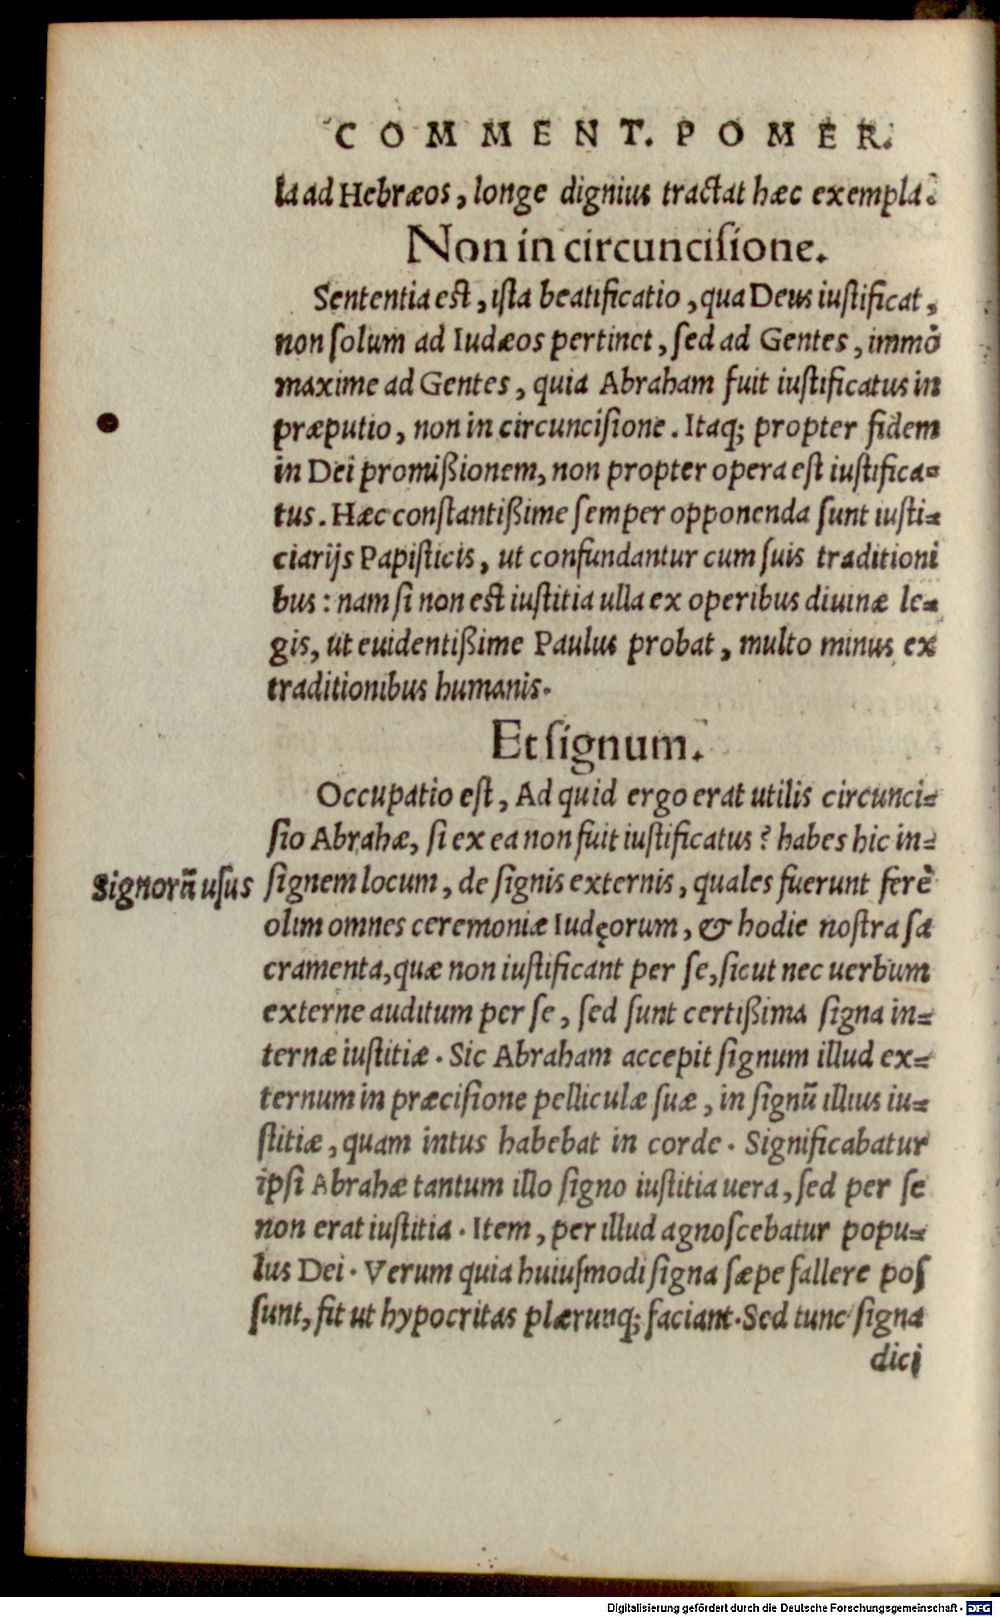 COMMENT. POMER.
la ad Hebræos, longe dignius tractat hæc exempla.
Non in circuncisione.
Sententia est, ista beatificatio, qua Deus iustificat,
non solum ad Iudæos pertinet, sed ad Gentes, immò
maxime ad Gentes, quia Abraham fuit iustificatus in
præputio, non in circuncisione. Itaq; propter fidem
in Dei promißionem, non propter opera est iustifica=
tus. Hæc constantißime semper opponenda sunt iusti=
ciarijs Papisticis, ut confundantur cum suis traditioni
bus: nam si non est iustitia ulla ex operibus diuinæ le=
gis, ut euidentißime Paulus probat, multo minus ex
traditionibus humanis.
Et signum.
Occupatio est, Ad quid ergo erat utilis circunci=
sio Abrahæ, si ex ea non fuit iustificatus? habes hic in=
Signorũ usus
signem locum, de signis externis, quales fuerunt ferè
olim omnes ceremoniæ Iudęorum, & hodie nostra sa
cramenta, quæ non iustificant per se, sicut nec uerbum
externe auditum per se, sed sunt certißima signa in=
ternæ iustitiæ. Sic Abraham accepit signum illud ex=
ternum in præcisione pelliculæ suæ, in signũ illius iu=
stitiæ, quam intus habebat in corde. Significabatur
ipsi Abrahæ tantum illo signo iustitia uera, sed per se
non erat iustitia. Item, per illud agnoscebatur popu=
lus Dei. Verum quia huiusmodi signa sæpe fallere pos
sunt, fit ut hypocritas plærunq; faciant. Sed tunc signa
dici
Digitalisierung gefördert durch die Deutsche Forschungsgemeinschaft - DFG